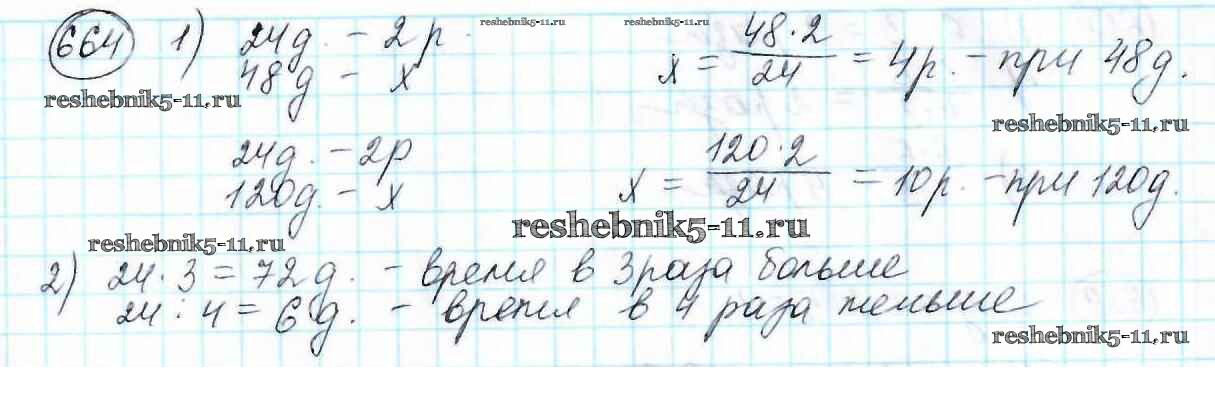 reshebnik5-11.ru reshebnik5-11.ru
664 1) 24д. - 2р.
48д - x x = 48·2/24 = 4р. - при 48д.
reshebnik5-11.ru
reshebnik5-11.ru
24д. - 2р
120д - x x = 120·2/24 = 10р. - при 120д.
reshebnik5-11.ru
reshebnik5-11.ru
2) 24·3 = 72д. - время в 3 раза больше
24:4 = 6д. - время в 4 раза меньше
reshebnik5-11.ru